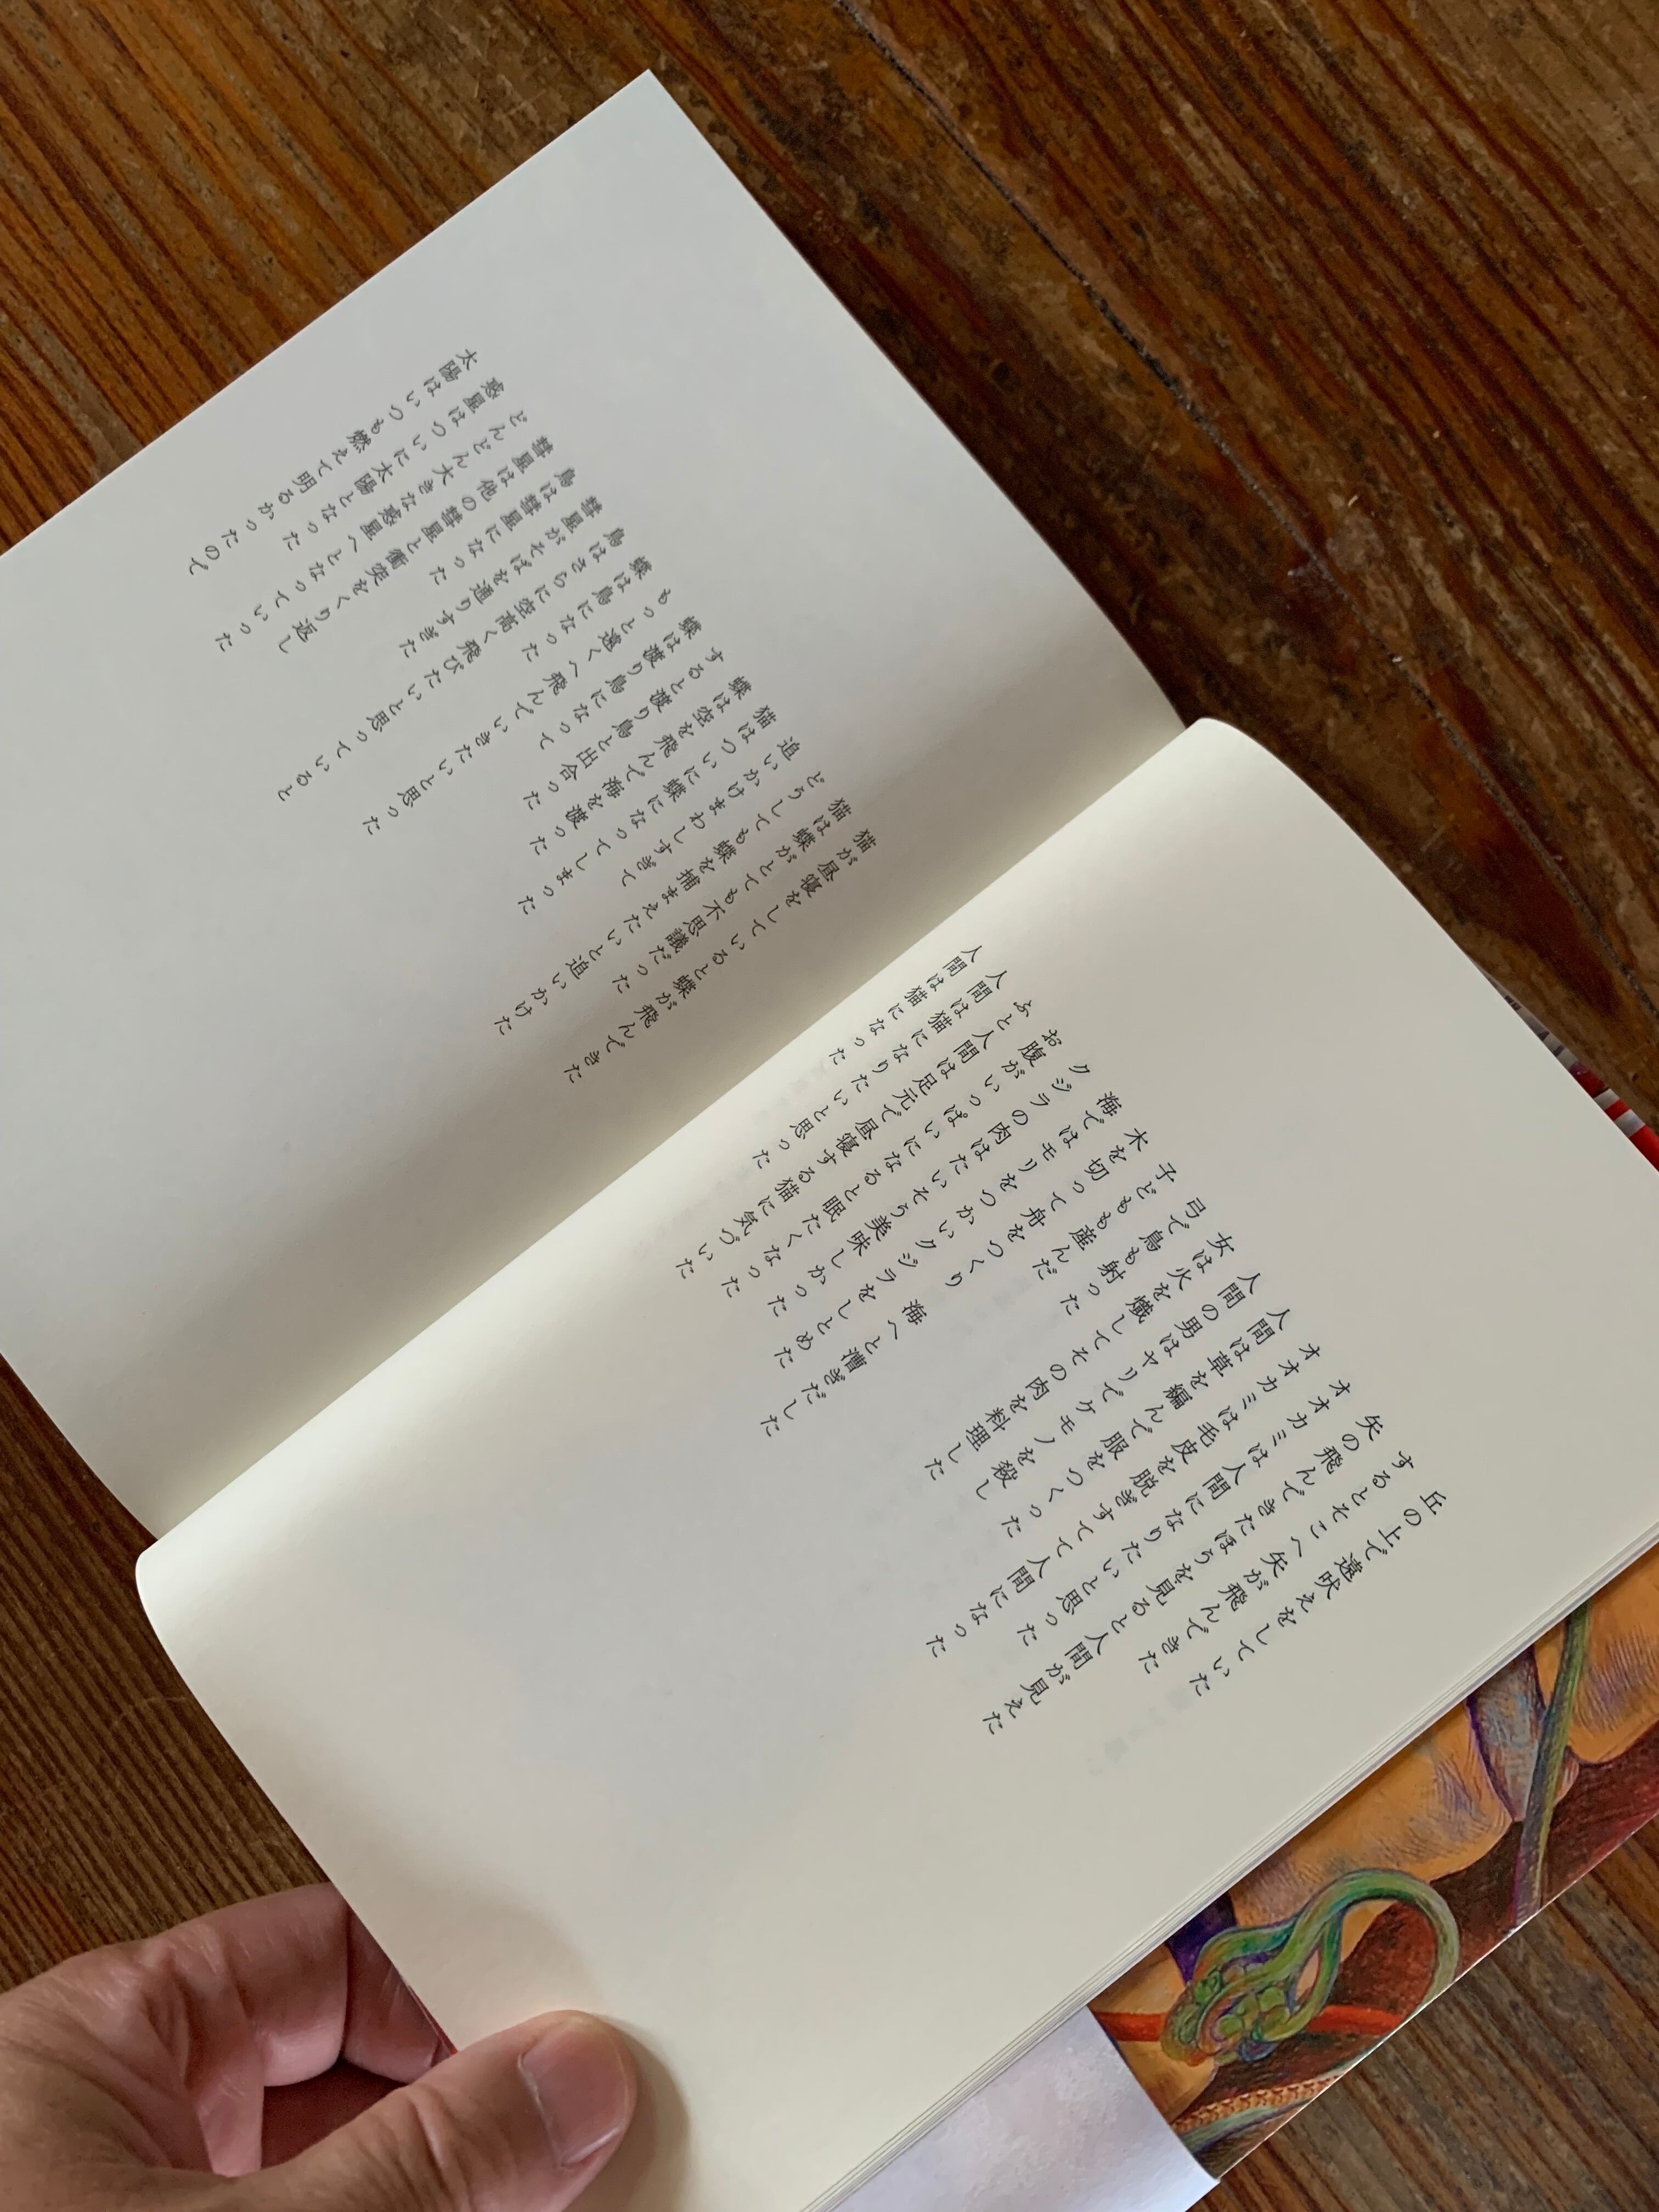 丘の上で遠吠えをしていた
するとそこへ矢が飛んできた
矢の飛んできたほうを見ると人間が見えた
オオカミは人間になりたいと思った
オオカミは毛皮を脱ぎすて人間になった
人間は草を編んで服をつくった
人間の男はヤリでケモノを殺した
女は火を熾してその肉を料理した
弓で鳥も射った
子どもも産んだ
木を切って舟をつくり海へと漕ぎだした
海ではモリをつかいクジラをしとめた
クジラの肉はたいそう美味しかった
お腹がいっぱいになると眠たくなった
ふと人間は足元で昼寝する猫に気づいた
人間は猫になりたいと思った
人間は猫になった
猫が昼寝をしていると蝶が飛んできた
猫は蝶がとても不思議だった
どうしても蝶を捕まえたいと追いかけた
追いかけまわしすぎて
猫はついに蝶になってしまった
蝶は空を飛んで海を渡った
すると渡り鳥と出合った
蝶は渡り鳥になって
もっと遠くへ飛んでいきたいと思った
蝶は鳥になった
鳥はさらに空高く飛びたいと思っていると
彗星がそばを通りすぎた
鳥は彗星になった
彗星は他の彗星と衝突をくり返し
どんどん大きな惑星へとなっていった
惑星はついに太陽となった
太陽はいつも燃えて明るかったので